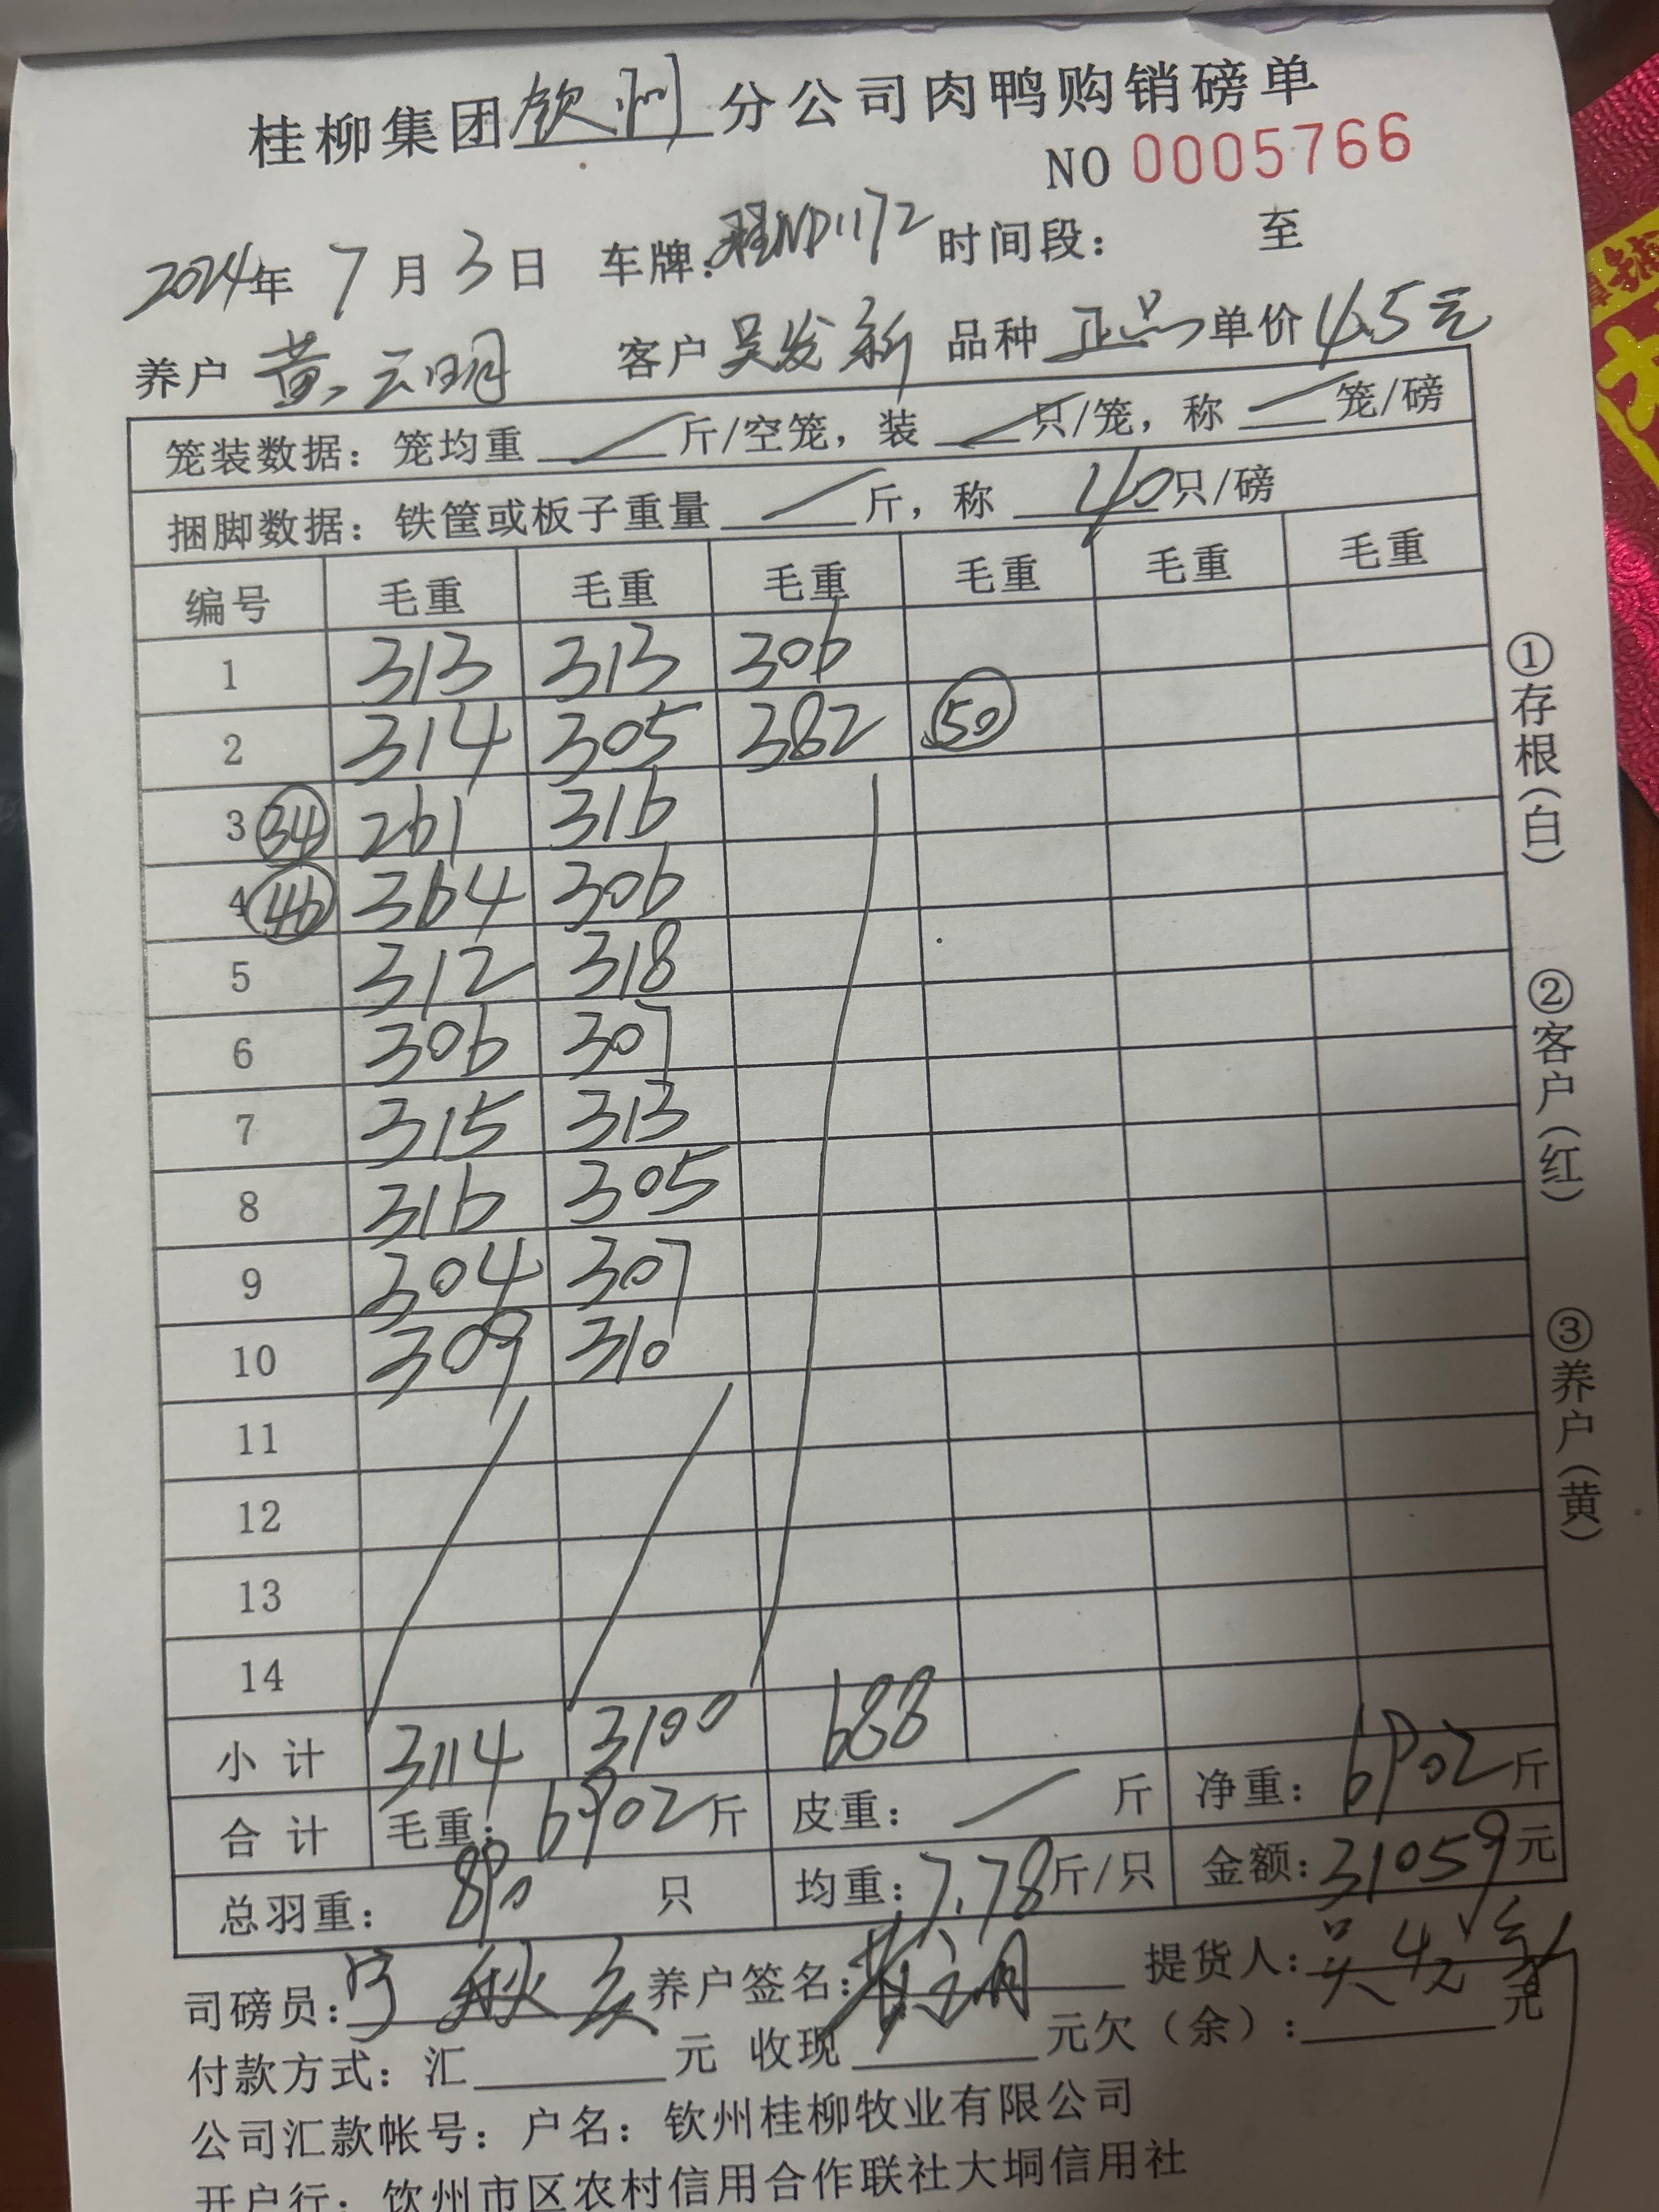 桂柳集团钦州分公司肉鸭购销磅单
NO 0005766
2024年 7月3日 车牌: ND1172 时间段: 至
养户 黄云明 客户 吴发新 品种 正品 单价 4.5元
笼装数据: 笼均重 / 斤/空笼, 装 / 只/笼, 称 / 笼/磅
捆脚数据: 铁筐或板子重量 / 斤, 称 40只/磅
编号 毛重 毛重 毛重 毛重 毛重 毛重
1 313 313 306
2 314 305 382 50
3 34 261 316
4 46 364 306
5 312 318
6 306 307
7 315 313
8 316 305
9 304 307
10 309 310
11
12
13
14
小计 3114 3100 688
合计 毛重: 6902斤 皮重: / 斤 净重: 6902斤
总羽重: 890 只 均重: 7.78斤/只 金额: 31059元
司磅员: 养户签名: 黄云明 提货人: 吴
付款方式: 汇 元 收现 元欠(余): 元
公司汇款帐号: 户名: 钦州桂柳牧业有限公司
开户行: 钦州市区农村信用合作联社大垌信用社
①存根(白) ②客户(红) ③养户(黄)